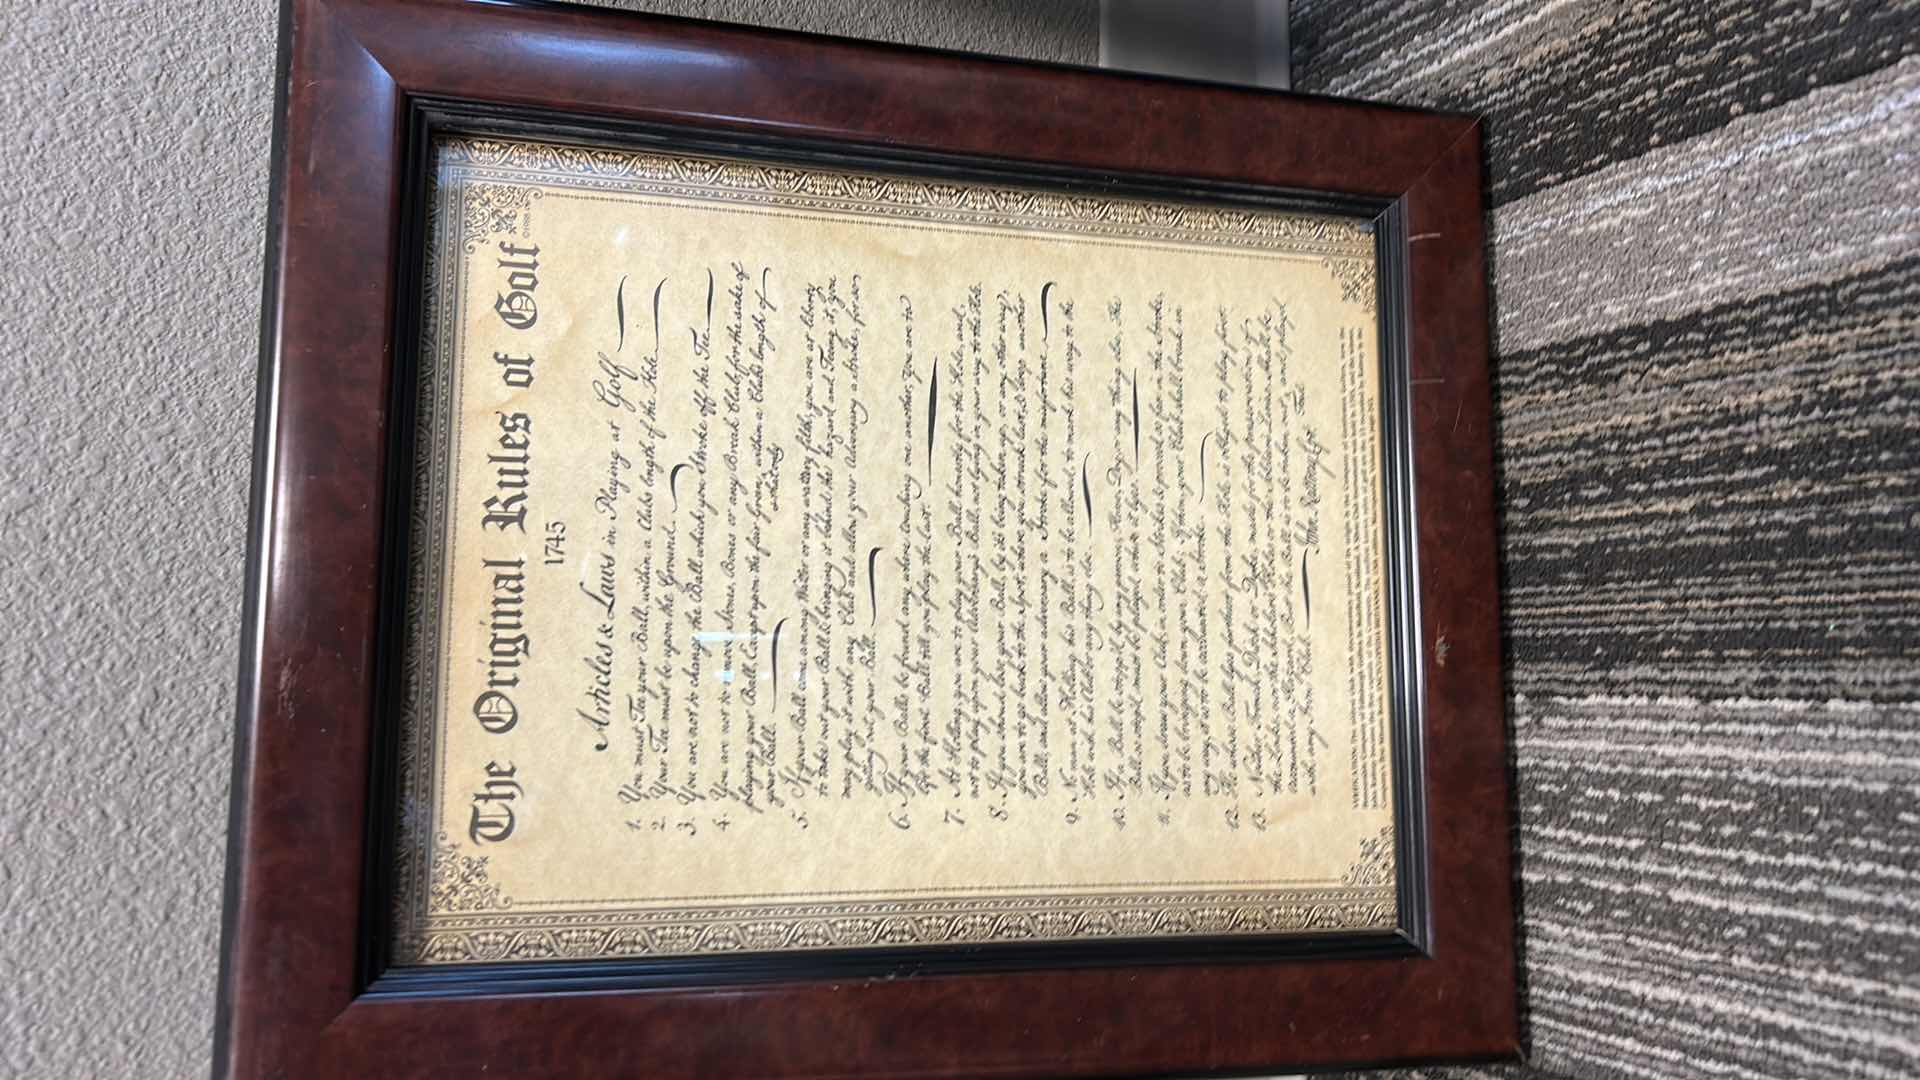 The Original Rules of Golf
1745
Articles & Laws in Playing at Golf
1. You must Tee your Ball, within a Clubs length of the Hole.
2. Your Tee must be upon the Ground.
3. You are not to change the Ball which you Strike off the Tee
4. You are not to remove Stones, Bones or any Break Club, for the sake of
playing your Ball, Except upon the fair Green, within a Clubs length of
your Ball. & that only
5. If your Ball come among Watter or any wattery filth, you are at liberty
to take out your Ball & bringing it behind the hazard and Teeing it, you
may play it with any Club and allow your Adversary a stroke for so
getting out your Ball.
6. If your Balls be found any where touching one another you are to
lift the first Ball till you play the last.
7. At Holling you are to play your Ball honestly for the Hole, and,
not to play upon your Adversary's Ball, not lying in your way to the Hole.
8. If you should lose your Ball, by its being taken up, or any other way,
you are to go back to the Spot, where you struck last, & drop another
Ball, and allow your adversary a Stroke for the misfortune
9. No man at Holling his Ball is to be allowed, to mark his way to the
Hole with his Club or any thing else.
10. If a Ball be stopp'd by any person, Horse, Dog or any thing else, The
Ball so stop'd must be play'd where it lyes.
11. If you draw your Club, in order to Strike & proceed so far in the Stroke,
as to be bringing down your Club; If then, your Club shall break, in
any way, it is to be accounted a Stroke.
12. He whose Ball lyes farthest from the Hole is obliged to play first.
13. Neither Trench, Ditch or Dyke, made for the preservation of
the Links, nor the Scholars Holes or the Soldiers Lines shall be
accounted a Hazard, But the Ball is to be taken out, and play'd
with any Iron Club. John Rattray Cpt